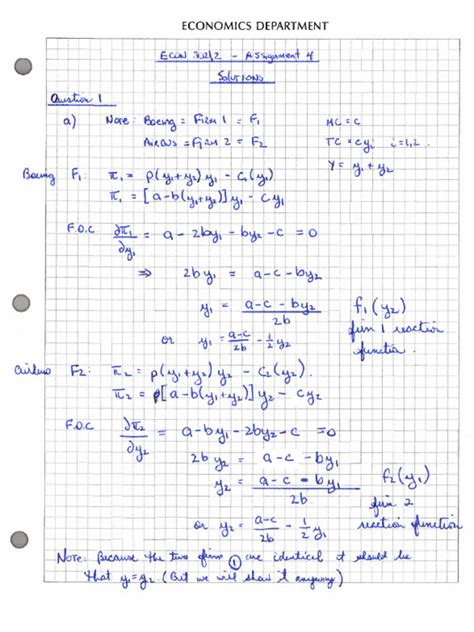 ECONOMICS DEPARTMENT
ECON 302/2 - Assignment 4
Solutions
Question 1
a) Note: Boeing = Firm 1 = F₁ MC = C
Airbus = Firm 2 = F₂ TC = cyᵢ i=1,2.
Y = y₁ + y₂
Boeing F₁: π₁ = p(y₁+y₂)y₁ - C₁(y₁)
π₁ = [a-b(y₁+y₂)]y₁ - cy₁
F.O.C ∂π₁/∂y₁ = a - 2by₁ - by₂ - c = 0
⇒ 2by₁ = a-c-by₂
y₁ = (a-c-by₂)/2b f₁(y₂)
or y₁ = (a-c)/2b - ½y₂ firm 1 reaction
function.
F₂: π₂ = p(y₁+y₂)y₂ - C₂(y₂).
π₂ = [a-b(y₁+y₂)]y₂ - cy₂
F.O.C ∂π₂/∂y₂ = a-by₁-2by₂-c = 0
2by₂ = a-c-by₁
y₂ = (a-c-by₁)/2b f₂(y₁)
firm 2
or y₂ = (a-c)/2b - ½y₁ reaction function
Note: Because the two firms ① are identical it should be
that y₁=y₂. (But we will show it anyway)